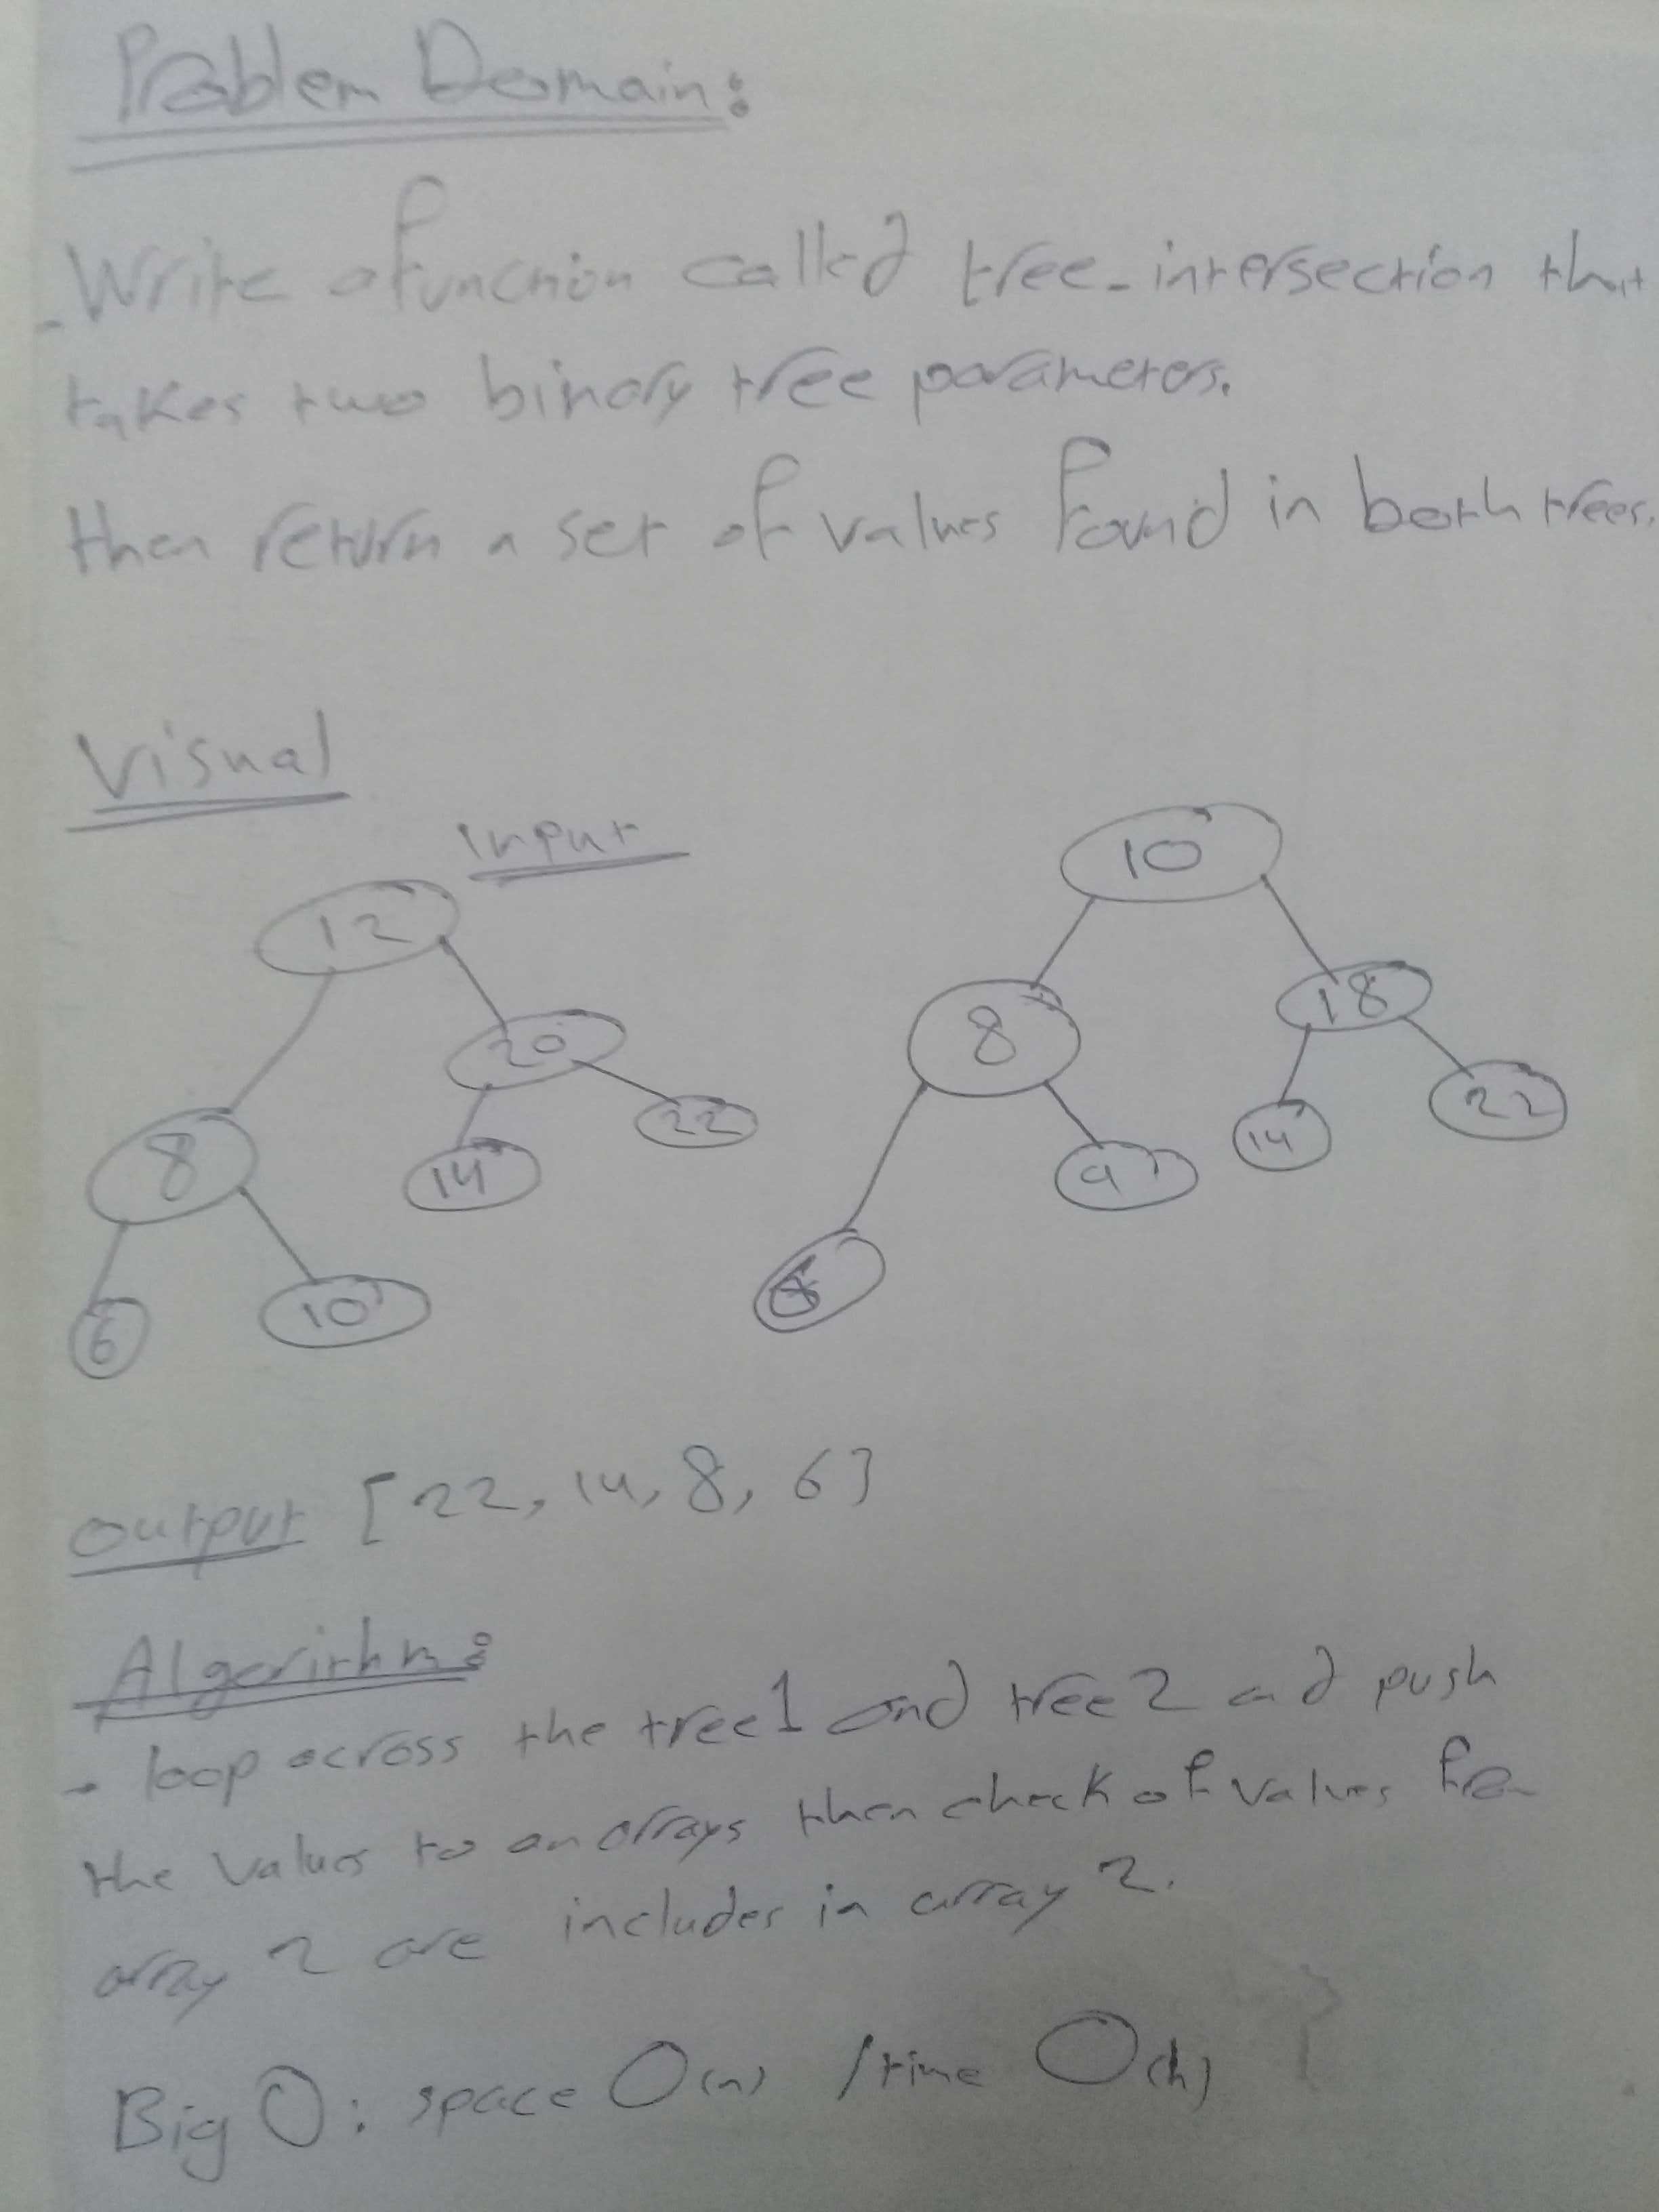 Problem Domain:
- Write a function called tree_intersection that
takes two binary tree parameters.
then return a set of values found in both trees.
Visual
input
12
20
8
14
22
6
10
10
8
18
9
14
22
output [22, 14, 8, 6]
Algorithm:
- loop across the tree1 and tree2 and push
the values to an arrays then check of values from
array 2 are includes in array 2.
Big O: space O(n) / time O(h)